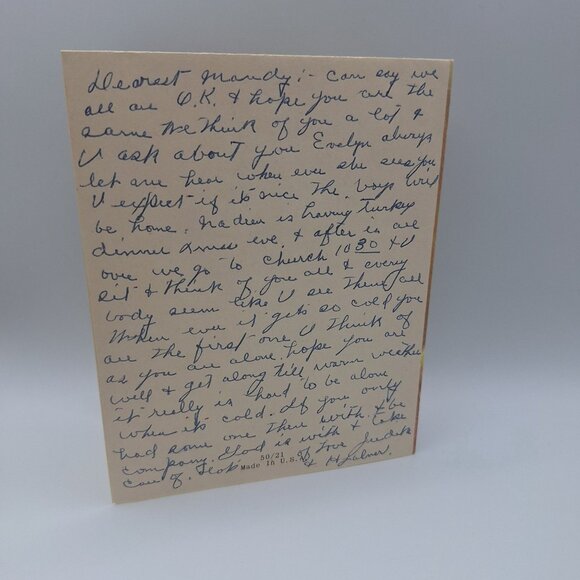 Dearest Mandy:- Can say we
all are O.K. & hope you are the
same We think of you a lot &
I ask about you Evelyn always
let me hear when ever she sees you
I expect if its nice the boys will
be home. Nadien is having turkey
dinner Xmas eve. & after is all
over we go to church 10 30 & I
sit & think of you all & every
body seem like I see them all
When ever it gets so cold you
are the first one I think of
as you are alone. hope you are
well & get along till warm weather
it really is hard to be alone
when its cold. If you only
had some one there with & be
company. God is with & take
care of
50/21
Made In U.S.A.
Love Judith
& Hjalmer.